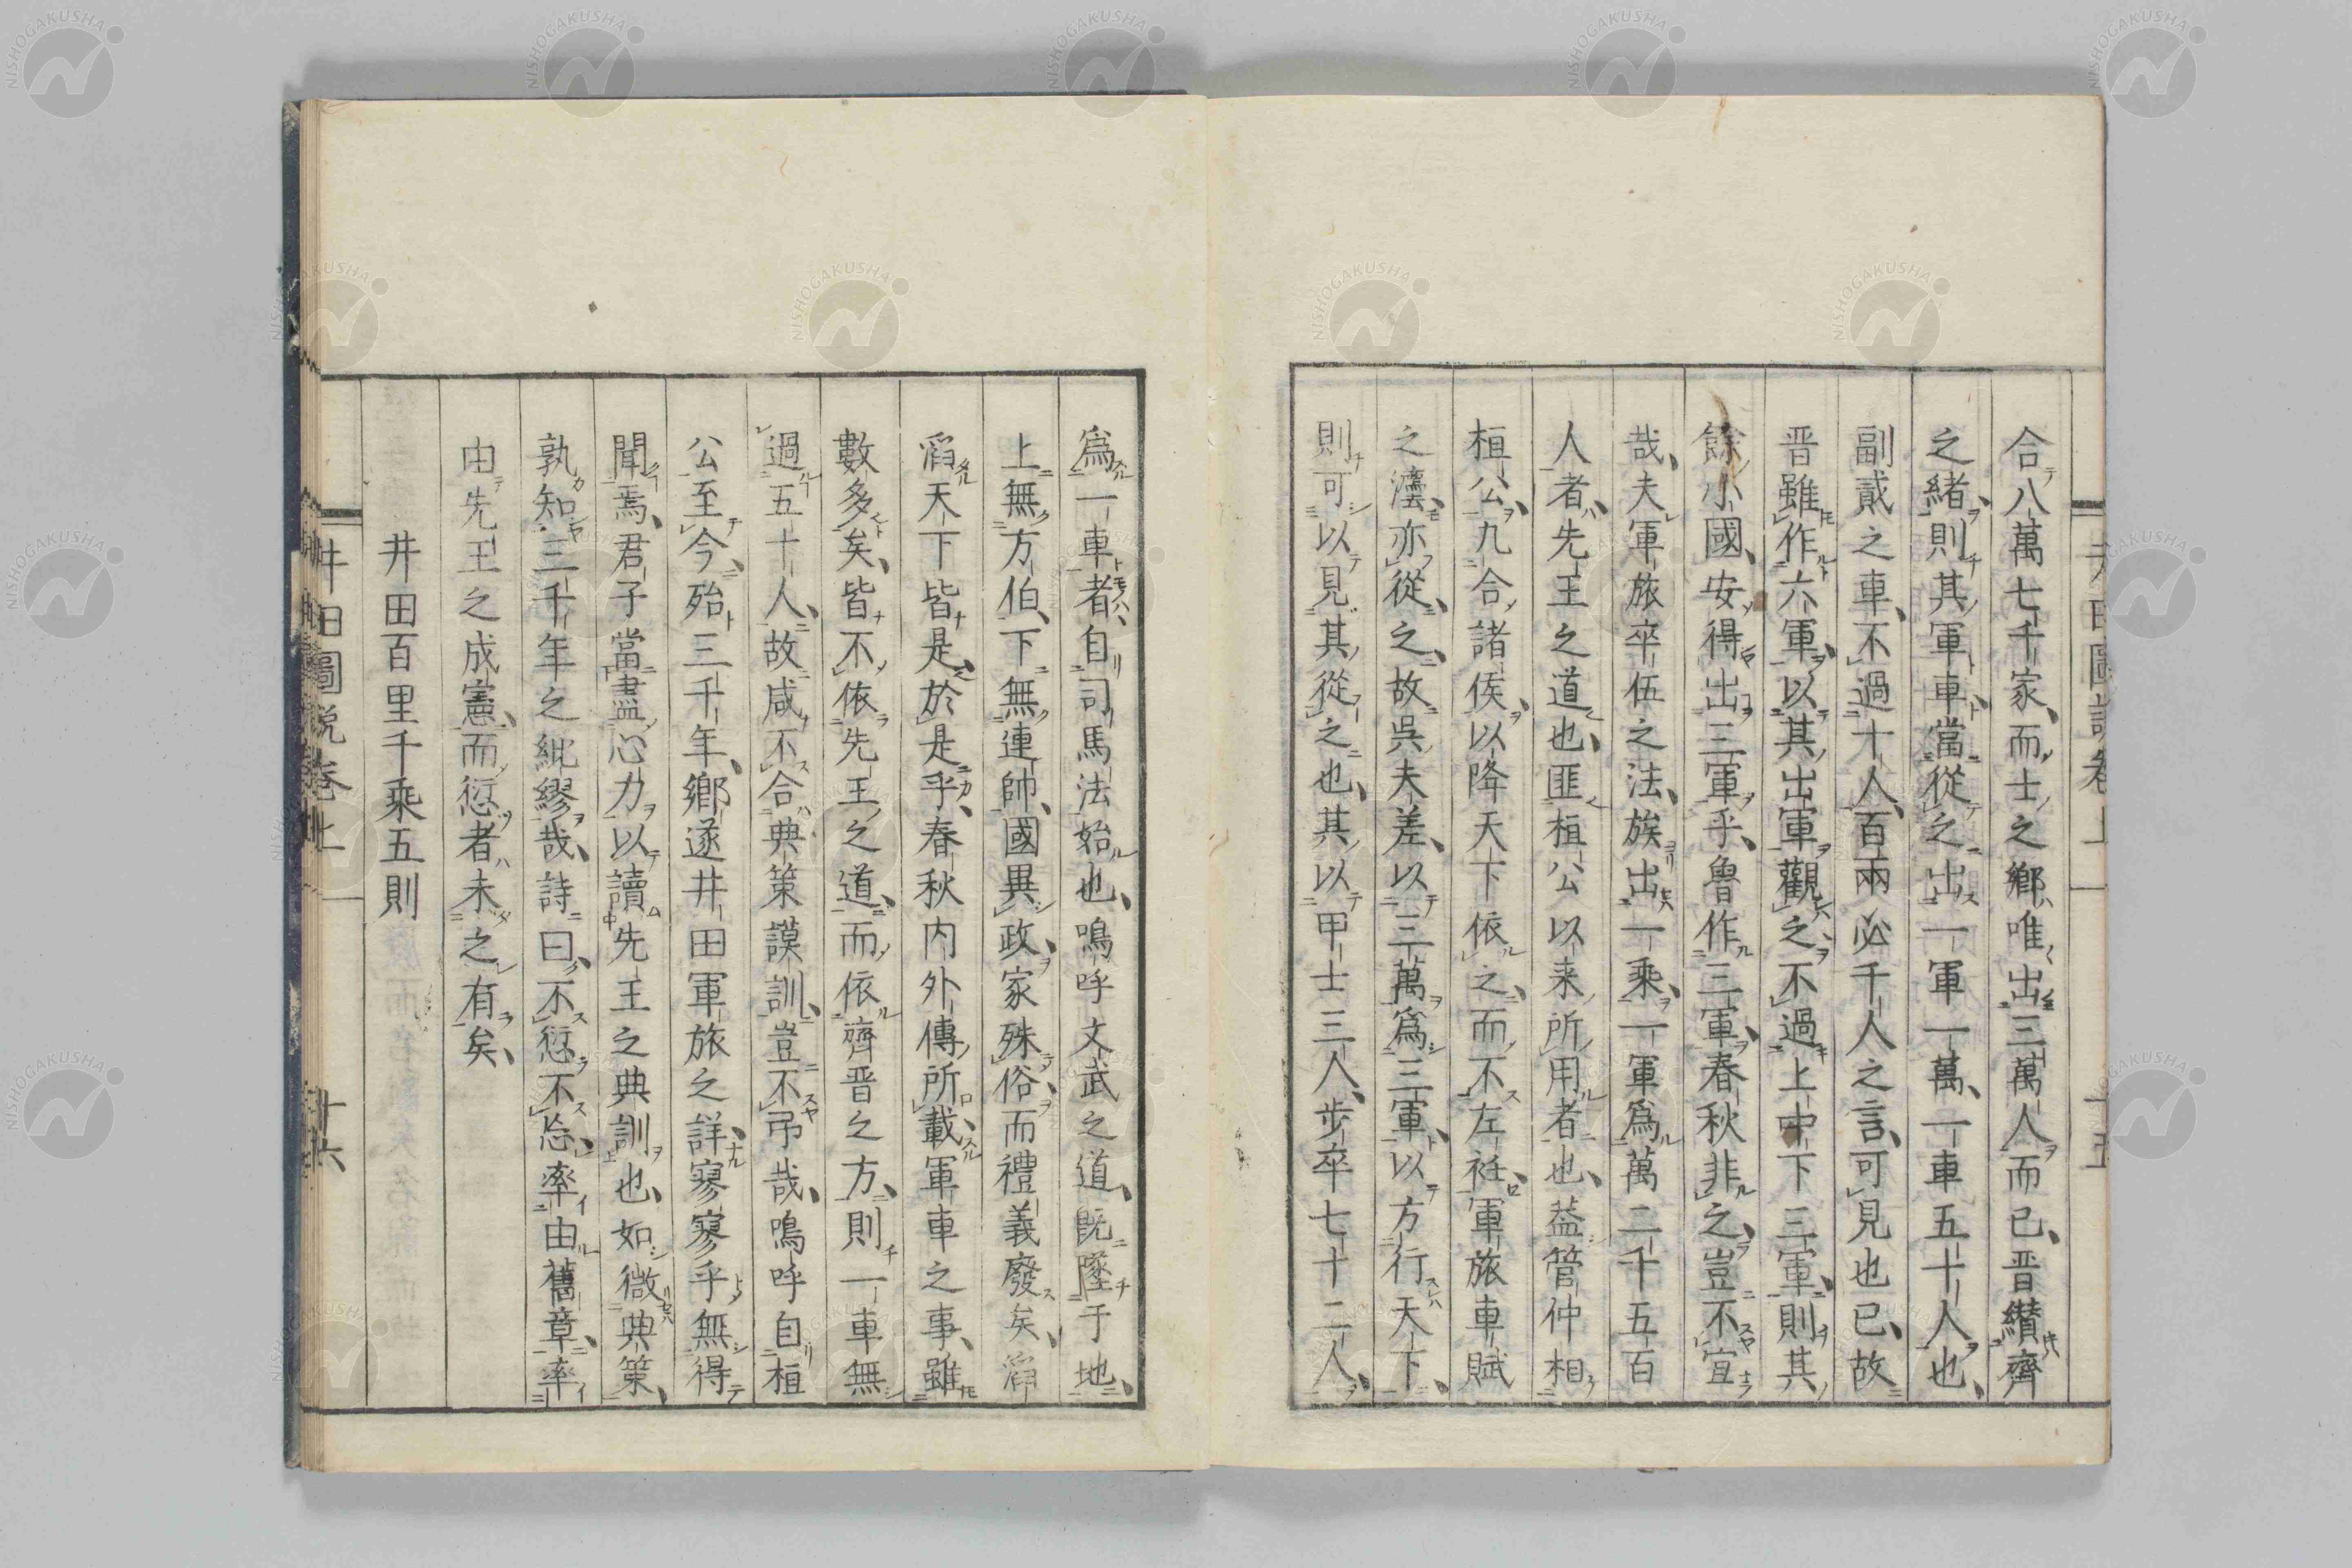 合八萬七千家、而士之鄉唯出三萬人而已、晋纉齊
之緒、則其軍車、當從之出一軍一萬、一車五十人也、
副貳之車、不過十人、百兩必千人之言、可見也已、故
晋雖作六軍、以其出軍觀之、不過上中下三軍、則其
餘小國、安得出三軍乎、魯作三軍、春秋非之、豈不宜
哉、夫軍旅卒伍之法、族出一乘、一軍爲萬二千五百
人者、先王之道也、匪桓公以来所用者也、葢管仲相
桓公、九合諸侯、以降天下依之、而不左衽、軍旅車賦
之灋、亦從之、故吳夫差、以三萬爲三軍、以方行天下、
則可以見其從之也、其以甲士三人、步卒七十二人、
爲一車者、自司馬法始也、嗚呼文武之道、既墜于地、
上無方伯、下無連帥、國異政、家殊俗、而禮義廢矣、滔
滔天下皆是、於是乎、春秋内外傳所載、軍車之事、雖
數多矣、皆不依先王之道、而依齊晋之方、則一車無
過五十人、故咸不合典策謨訓、豈不弔哉、嗚呼自桓
公至今、殆三千年、鄉遂井田軍旅之詳、寥寥乎無得
聞焉、君子當盡心力以讀先王之典訓也、如微典策、
孰知三千年之紕繆哉、詩曰、不愆不忘、率由舊章、率
由先王之成憲、而愆者未之有矣、
井田百里千乘五則
井田圖說卷上
十六